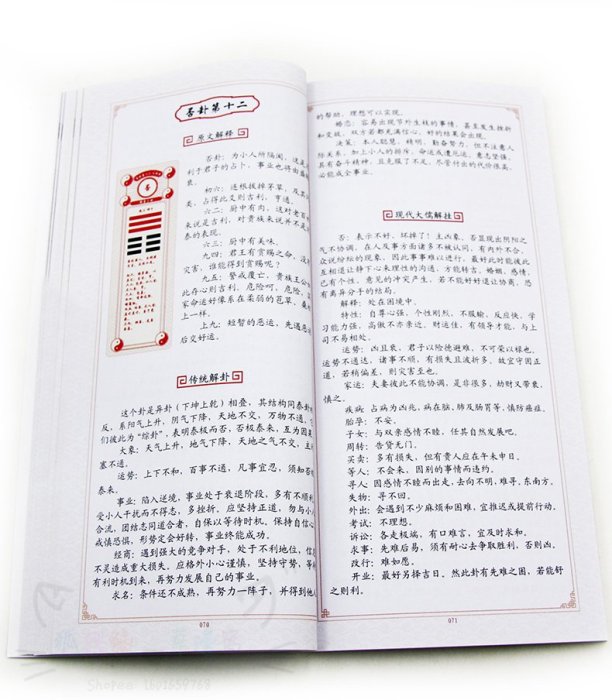 否卦第十二
原文解释
否卦：为小人所隔阂，这是
利于君子的占卜，事业也将由盛
衰。
初六：连根拔掉茅草，及其
类，占得此爻则吉利，亨通。
六二：厨中有肉，这对老百
来说是吉利，对贵族来说并不是
泰的表现。
六三：厨中有美味。
九四：君王有赏赐之命，没
灾害，谁能得到赏赐呢？
九五：警戒覆亡，贵族王公
此存心则吉利，危险呵，危险，
家命运好像系在柔弱的苞草，桑
上一样。
上九：短暂的恶运，先遇恶
后交好运。
传统解卦
这个卦是异卦（下坤上乾）相叠，其结构同泰卦
反，系阳气上升，阴气下降，天地不交，万物不通，
们彼此为“综卦”，表明泰极而否，否极泰来，互为因果
大象：天气上升，地气下降，天地之气不交，主
塞不通。
运势：上下不和，百事不通，凡事宜忍，须知否
泰来。
事业：陷入逆境，事业处于衰退阶段，多有不顺
受小人干扰而不得志，多挫折，应坚持正道，勿与小
合流，团结志同道合者，自保以等待时机，保持自信
戒慎恐惧，形势定会好转，事业终能成功。
经商：遇到强大的竞争对手，处于不利地位，信
不灵造成重大损失，应格外小心谨慎，坚持守势，等
有利时机到来，再努力发展自己的事业。
求名：条件还不成熟，再努力一阵子，并得到他
070
的帮助，理想可以实现。
婚恋：容易出现节外生枝的事情，甚至发生挫折
和变故，双方若都充满信心，好的结果会出现。
决策：本人聪慧，精明，勤奋努力，但不注意人
际关系，加上小人的排斥，命运或遭厄运，意志坚强，
具有奋斗精神，且克服了不足，尽管付出的代价很高，
必能成全事业。
现代大儒解挂
否：表示不好，坏掉了！主凶象，否显现出阴阳之
气不协调，在人及事方面诸多不被认同，有内外不合，
众说纷纭的现象，因此事事难以进行，最好此时应彼此
互相退让静下心来理性的沟通，方能转吉，婚姻，感情，
己有个性，意见的冲突产生，若不能好好退让协商，恐
有离异分手的结局。
解释：处在困境中。
特性：自尊心强，个性刚烈，不服输，反应快，学
习能力强，高傲不亦亲近，财运佳，有领导才能，与上
司不易相处。
运势：凶且衰，君子以险德避难，不可荣以禄也。
运势不通达，诸事不顺，有损失且波折多，故宜守困正
道，若稍偏差，则灾害至也。
家运：夫妻彼此不能协调，是非很多，劫财又带衰，
慎之。
疾病：占病为凶兆，病在脑，肺及肠胃等，慎防癌症。
胎孕：不安。
子女：与双亲感情不睦，任其自然发展吧。
周转：告贷无门。
买卖：多有损失，但有贵人应在年末申日。
等人：不会来，因别的事情而违约。
寻人：因感情不睦而出走，去向不明，难寻，东南方。
失物：寻不回。
外出：会遇到不少麻烦和困难，宜推迟或提前行动。
考试：不理想。
诉讼：各走极端，有口难言，宜及时求和。
求事：先难后易，须有耐心去争取胜利，否则凶。
改行：难如愿。
开业：最好另择吉日，然此卦有先难之困，若能舒
之则利。
071